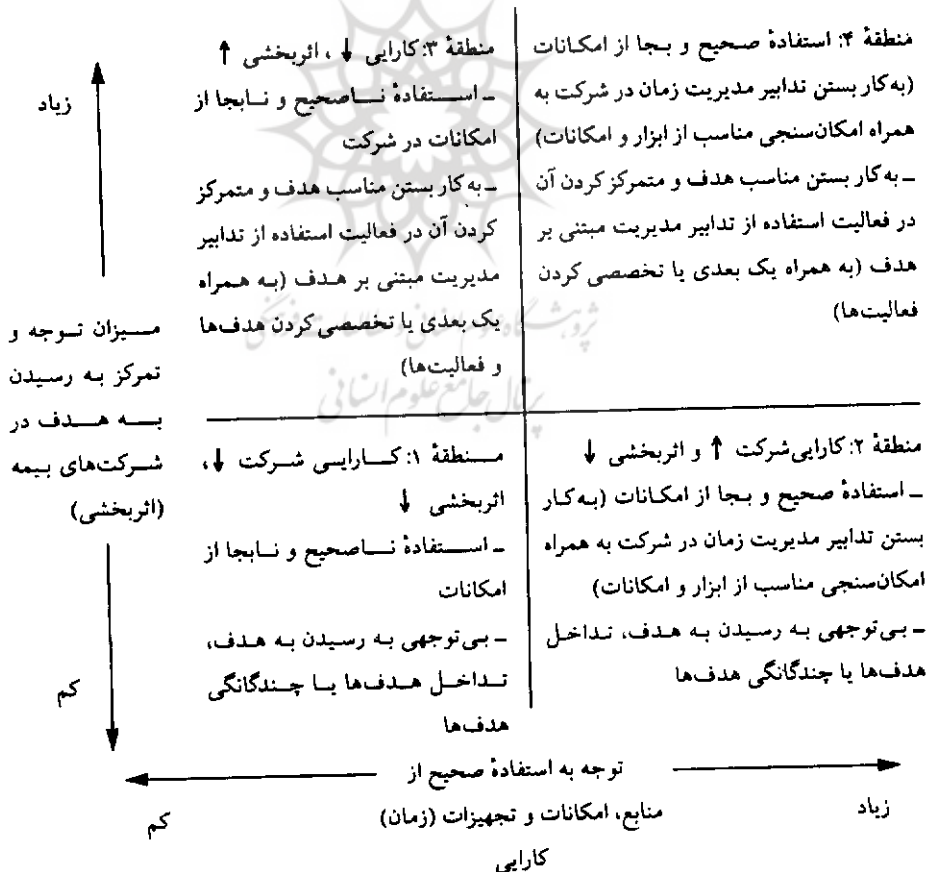 منطقهٔ ۴: استفادهٔ صحیح و بجا از امکانات
(به‌کار بستن تدابیر مدیریت زمان در شرکت به
همراه امکان‌سنجی مناسب از ابزار و امکانات)
ـ به‌کار بستن مناسب هدف و متمرکز کردن آن
در فعالیت استفاده از تدابیر مدیریت مبتنی بر
هدف (به همراه یک بعدی یا تخصصی کردن
فعالیت‌ها)
منطقهٔ ۳: کارایی ↓ ، اثربخشی ↑
ـ استفادهٔ ناصحیح و نابجا از
امکانات در شرکت
ـ به‌کار بستن مناسب هدف و متمرکز
کردن آن در فعالیت استفاده از تدابیر
مدیریت مبتنی بر هدف (به همراه
یک بعدی یا تخصصی کردن هدف‌ها
و فعالیت‌ها)
زیاد
میزان توجه و
تمرکز به رسیدن
به هدف در
شرکت‌های بیمه
(اثربخشی)
کم
منطقهٔ ۲: کارایی شرکت ↑ و اثربخشی ↓
ـ استفادهٔ صحیح و بجا از امکانات (به‌کار
بستن تدابیر مدیریت زمان در شرکت به همراه
امکان‌سنجی مناسب از ابزار و امکانات)
ـ بی‌توجهی به رسیدن به هدف، تداخل
هدف‌ها یا چندگانگی هدف‌ها
منطقهٔ ۱: کارایی شرکت ↓،
اثربخشی ↓
ـ استفادهٔ ناصحیح و نابجا از
امکانات
ـ بی‌توجهی به رسیدن به هدف،
تداخل هدف‌ها یا چندگانگی
هدف‌ها
توجه به استفادهٔ صحیح از
زیاد
منابع، امکانات و تجهیزات (زمان)
کم
کارایی
پرتال جامع علوم انسانی